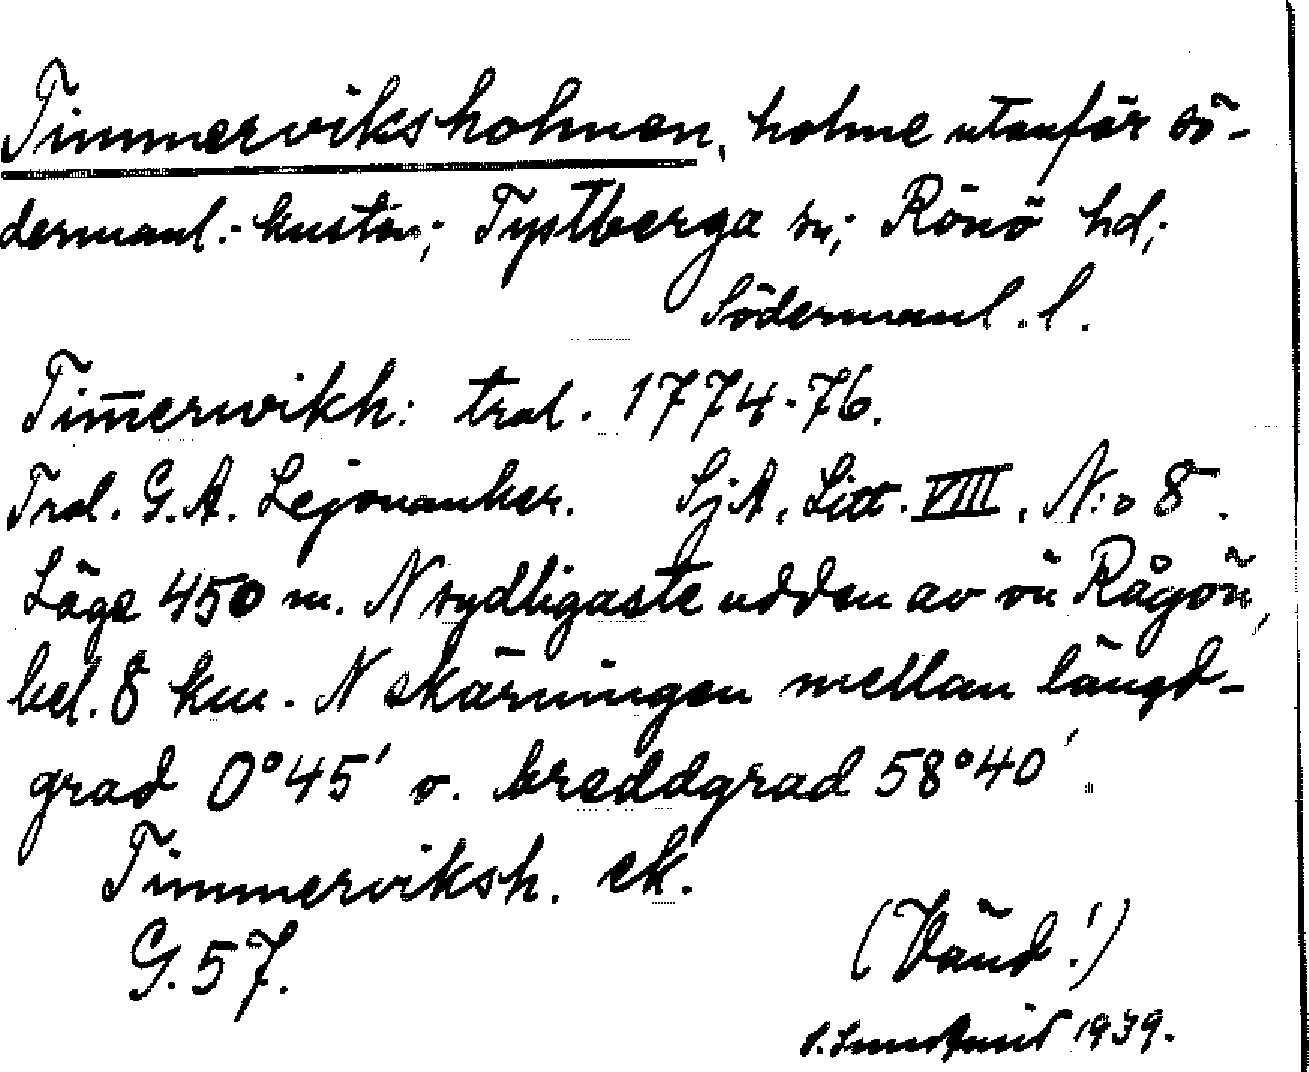 Timmerviksholmen, holme utanför sö-
dermanl.-kusten; Tystberga sn; Rönö hd;
Södermanl. l.
Tim̅erwikh: tral. 1774-76.
Trol. G. A. Lejonanker. SjA, Litt. VIII, N:o 8.
Läge 450 m. N sydligaste udden av ön Rågön,
bel. 8 km. N skärningen mellan längd-
grad 0°45' o. breddgrad 58°40'.
Timmerviksh. ek.
G. 57.
(Vänd!)
1939.